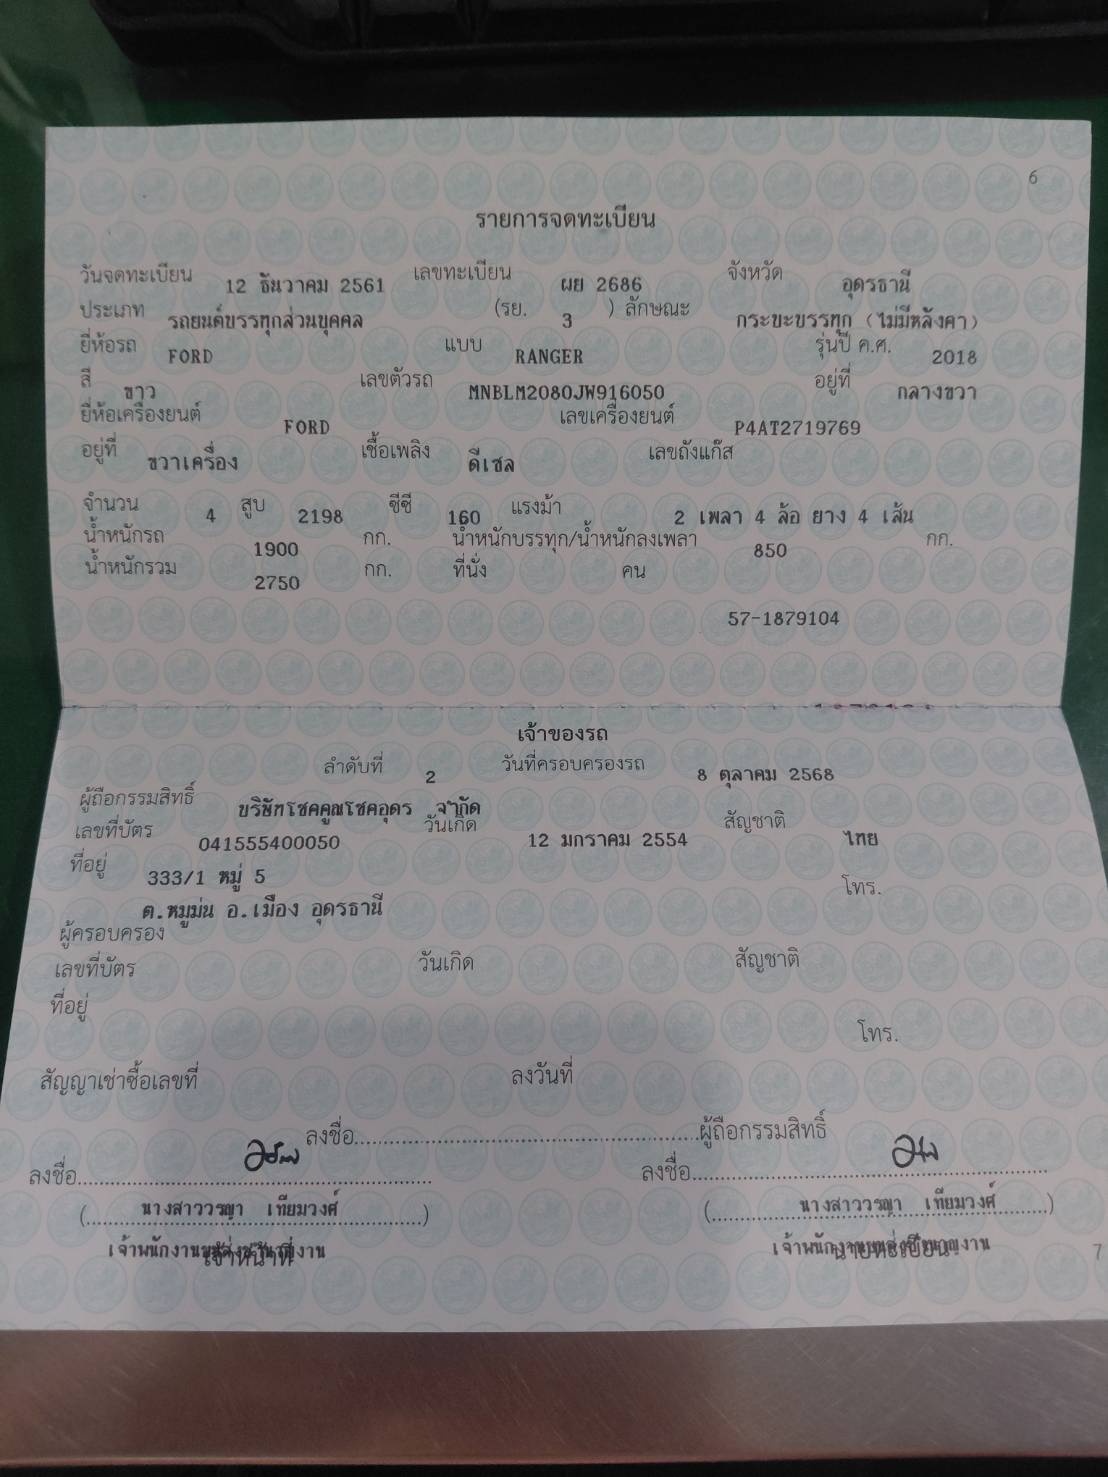 6
รายการจดทะเบียน
วันจดทะเบียน 12 ธันวาคม 2561 เลขทะเบียน ผย 2686 จังหวัด อุดรธานี
ประเภท รถยนต์บรรทุกส่วนบุคคล (รย. 3 ) ลักษณะ กระบะบรรทุก (ไม่มีหลังคา)
ยี่ห้อรถ FORD แบบ RANGER รุ่นปี ค.ศ. 2018
สี ขาว เลขตัวรถ MNBLM2080JW916050 อยู่ที่ กลางขวา
ยี่ห้อเครื่องยนต์ FORD เลขเครื่องยนต์ P4AT2719769
อยู่ที่ ขวาเครื่อง เชื้อเพลิง ดีเซล เลขถังแก๊ส
จำนวน 4 สูบ 2198 ซีซี 160 แรงม้า 2 เพลา 4 ล้อ ยาง 4 เส้น
น้ำหนักรถ 1900 กก. น้ำหนักบรรทุก/น้ำหนักลงเพลา 850 กก.
น้ำหนักรวม 2750 กก. ที่นั่ง คน
57-1879104
เจ้าของรถ
ลำดับที่ 2 วันที่ครอบครองรถ 8 ตุลาคม 2568
ผู้ถือกรรมสิทธิ์ บริษัทโชคคูณโชคอุดร จำกัด
เลขที่บัตร 041555400050 วันเกิด 12 มกราคม 2554 สัญชาติ ไทย
ที่อยู่ 333/1 หมู่ 5 โทร.
ต.หมูม่น อ.เมือง อุดรธานี
ผู้ครอบครอง
เลขที่บัตร วันเกิด สัญชาติ
ที่อยู่
โทร.
สัญญาเช่าซื้อเลขที่ ลงวันที่
ลงชื่อ ผู้ถือกรรมสิทธิ์
ลงชื่อ ลงชื่อ
( นางสาววรญา เทียมวงศ์ ) ( นางสาววรญา เทียมวงศ์ )
เจ้าพนักงานขนส่งชำนาญงาน เจ้าพนักงานขนส่งชำนาญงาน
เจ้าหน้าที่ นายทะเบียน
7